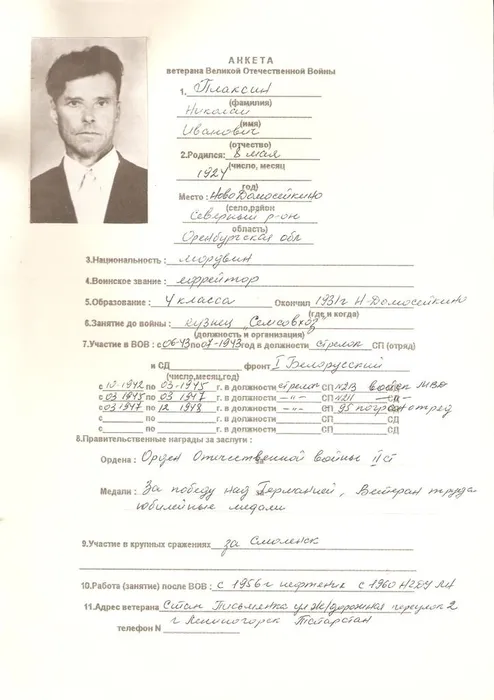 АНКЕТА
ветерана Великой Отечественной Войны
1. Плаксин
(фамилия)
Николай
(имя)
Иванович
(отчество)
2.Родился: 8 мая
(число, месяц
1924
год)
Место : Ново Домосейкино
(село,район
Северный р-он
область)
Оренбургская обл
3.Национальность : мордвин
4.Воинское звание : ефрейтор
5.Образование : 4 класса Окончил 1931г Н-Домосейкино
(где и когда)
6.Занятие до войны : кузнец
(должность и организация)
7.Участие в ВОВ : с 06-43 по 07-1943 год в должности стрелок СП (отряд)
и СД фронт I Белорусский
(число,месяц,год)
с 10-1942 по 03-1945 г. в должности стрелок СП N213 войск МВО
с 03 1945 по 03 1947 г. в должности -„- СП N211 -„- СД
с 03 1947 по 12 1948 г. в должности -„- СП 95 погран отряд
с по г. в должности СП СД
с по г. в должности СП СД
8.Правительственные награды за заслуги :
Ордена : Орден Отечественной войны II ст
Медали : За победу над Германией, Ветеран труда
юбилейные медали
9.Участие в крупных сражениях за Смоленск
10.Работа (занятие) после ВОВ : с 1956г нефтяник с 1960 НГДУ
11.Адрес ветерана Стан Письмянка ул Ж/дорожная переулок 2
г Лениногорск Татарстан
телефон N